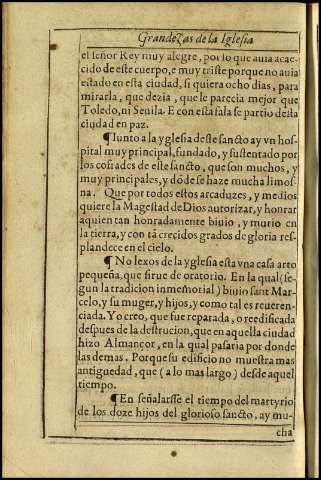 Grandeças de la Iglesia
el señor Rey muy alegre, por lo que auia acae-
cido de este cuerpo, e muy triste porque no auia
estado en esta ciudad, si quiera ocho dias, para
mirarla, que dezia, que le parecia mejor que
Toledo, ni Seuila. E con esta fala se partio desta
ciudad en paz.
¶Iunto a la yglesia deste sancto ay vn hos-
pital muy principal, fundado, y sustentado por
los cofrades de este sancto, que son muchos, y
muy principales, y dõde se haze mucha limos-
na. Que por todos estos arcaduzes, y medios
quiere la Magestad de Dios autorizar, y honrar
a quien tan honradamente biuio, y murio en
la tierra, y con tã crecidos grados de gloria res-
plandece en el cielo.
¶ No lexos de la yglesia esta vna casa arto
pequeña, que sirue de oratorio. En la qual (se-
gun la tradicion inmemorial) biuio sant Mar-
celo, y su muger, y hijos, y como tal es reueren-
ciada. Yo creo, que fue reparada, o reedificada
despues de la destrucion, que en aquella ciudad
hizo Almançor, en la qual pasaria por donde
las demas. Porque su edificio no muestra mas
antiguedad, que (a lo mas largo) desde aquel
tiempo.
¶En señalarsse el tiempo del martyrio
de los doze hijos del glorioso sancto, ay mu-
cha